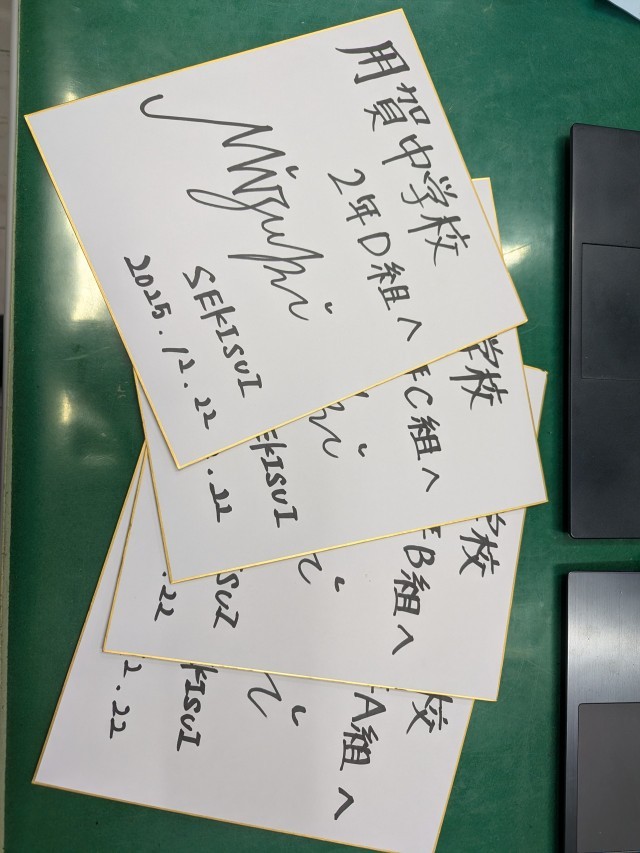 用賀中学校
2年D組へ
Mizuki
SEKISUI
2025.12.22
学校
C組へ
SEKISUI
.22
校
B組へ
SUI
.22
校
A組へ
KISUI
2.22